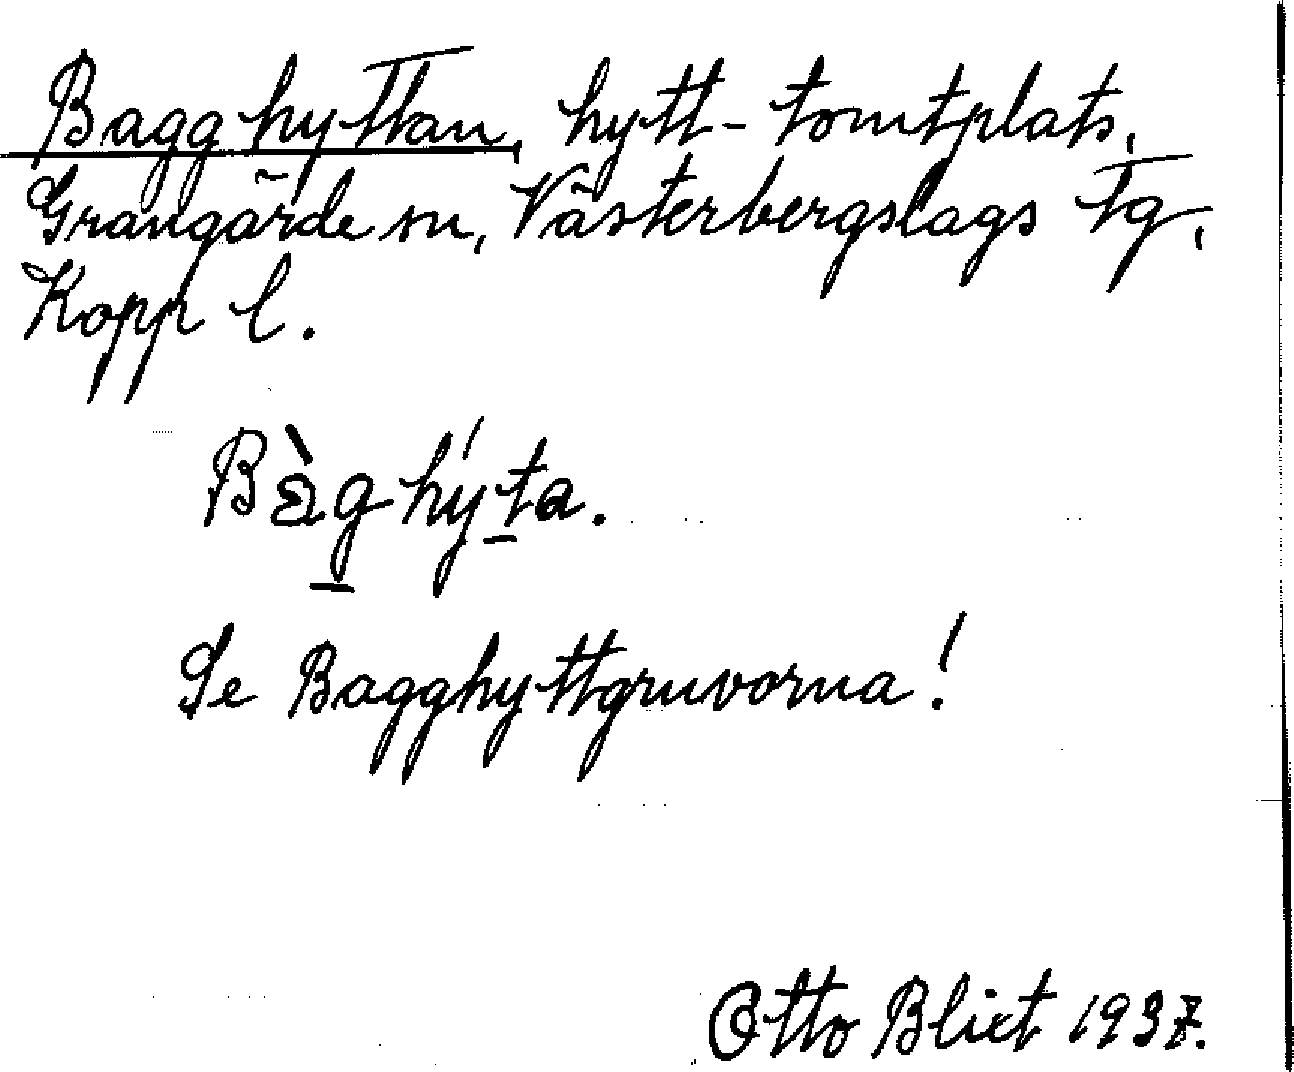 Bagghyttan, hytt-tomtplats,
Grangärde sn, Västerbergslags Tg,
Kopp l.
Bàghýta.
Se Bagghyttgruvorna!
Otto Blixt 1937.